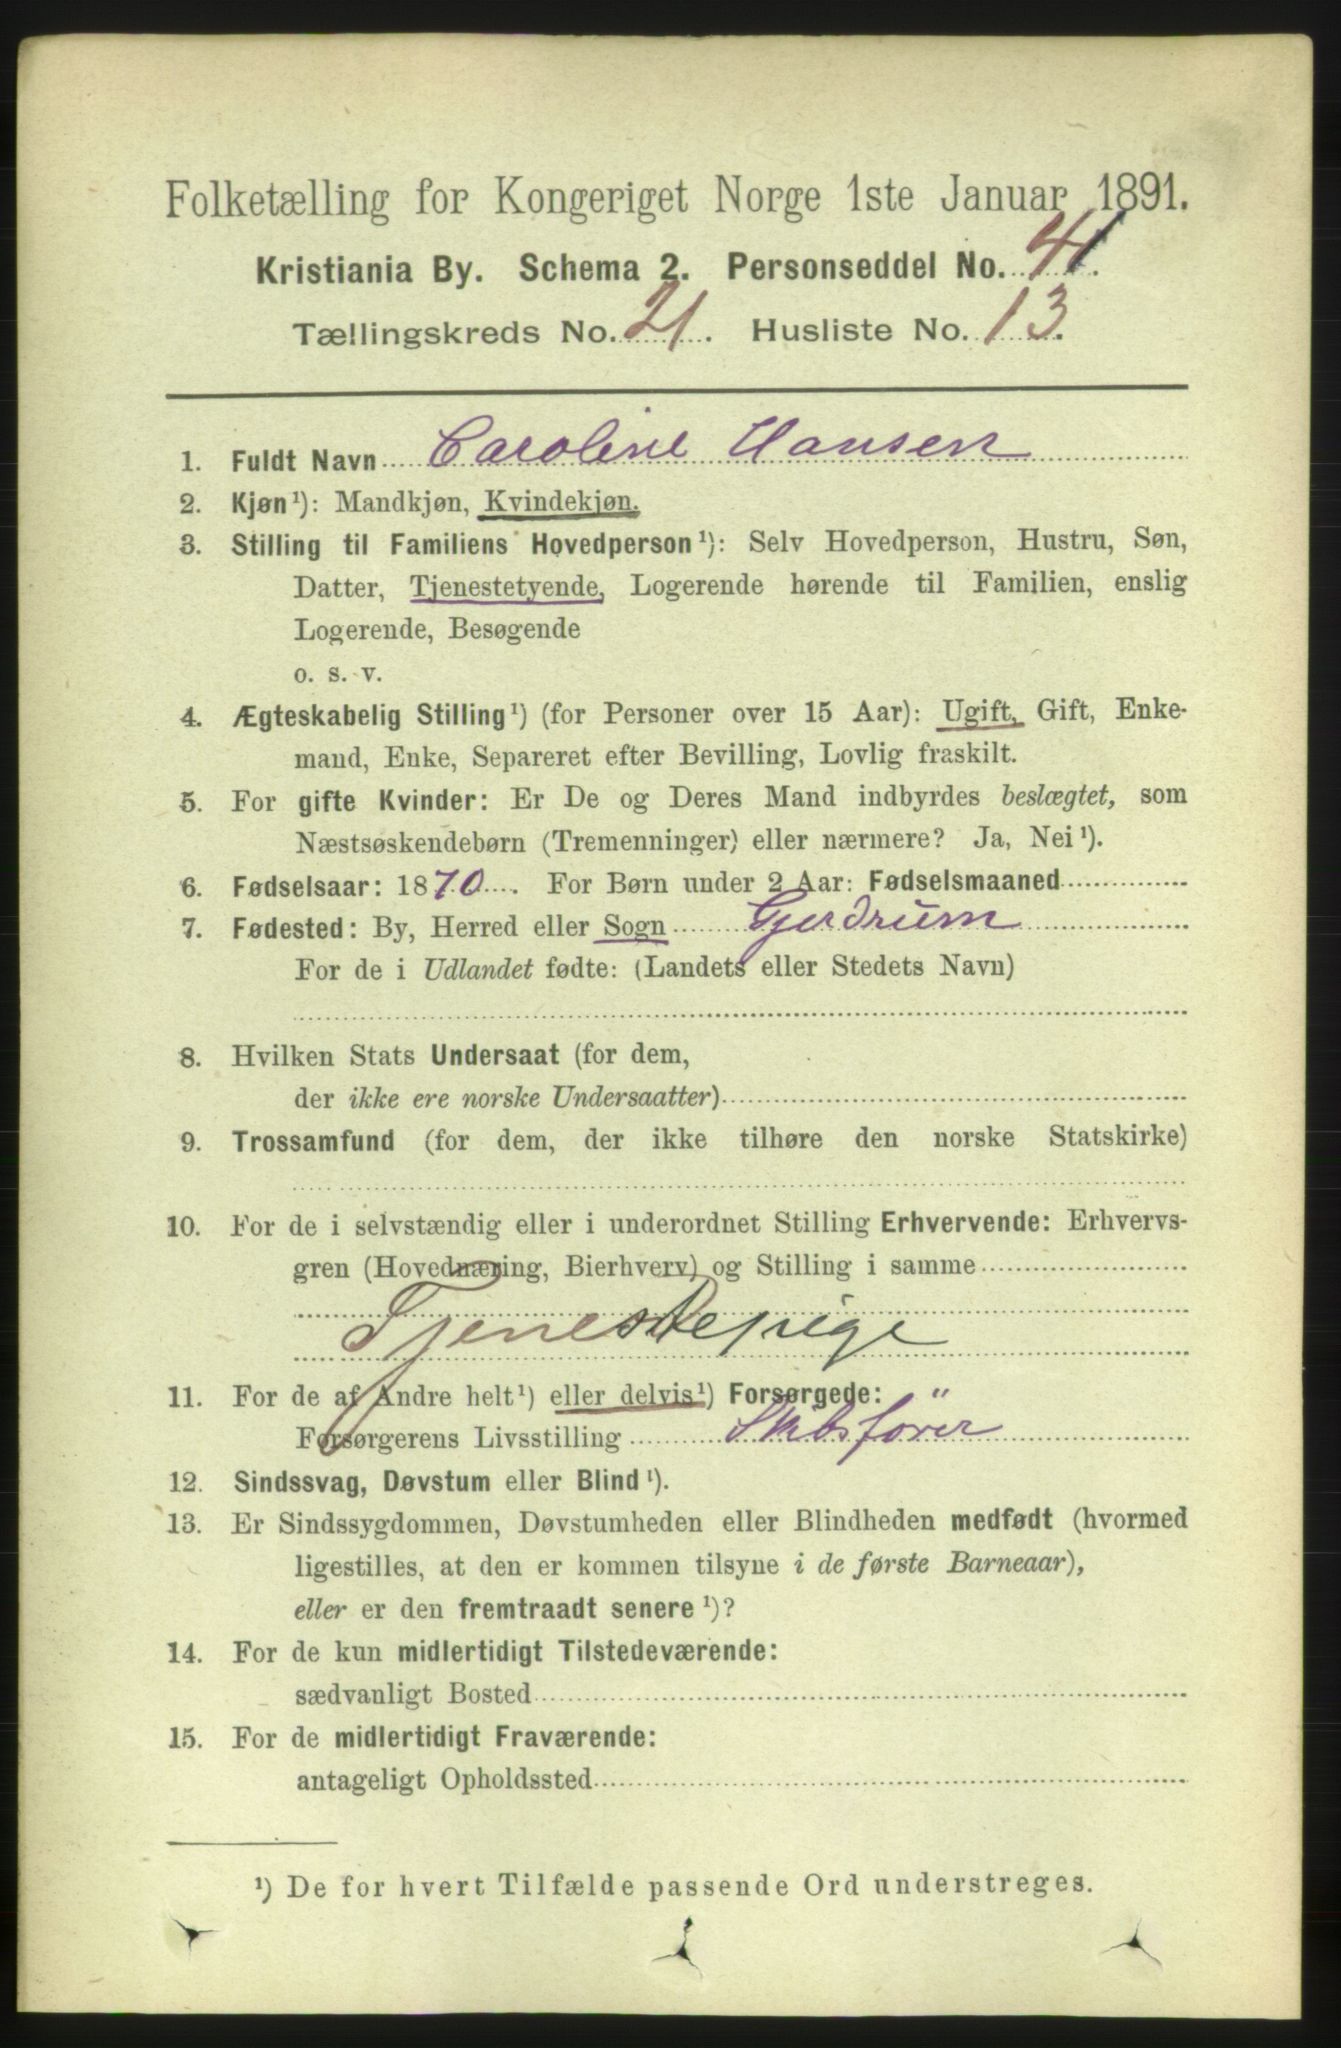 Folketælling for Kongeriget Norge 1ste Januar 1891.
Kristiania By. Schema 2. Personseddel No. 41.
Tællingskreds No. 21. Husliste No. 13.
1. Fuldt Navn Caroline Hansen
2. Kjøn¹): Mandkjøn, Kvindekjøn.
3. Stilling til Familiens Hovedperson¹): Selv Hovedperson, Hustru, Søn,
Datter, Tjenestetyende, Logerende hørende til Familien, enslig
Logerende, Besøgende
o. s. v.
4. Ægteskabelig Stilling¹) (for Personer over 15 Aar): Ugift, Gift, Enke-
mand, Enke, Separeret efter Bevilling, Lovlig fraskilt.
5. For gifte Kvinder: Er De og Deres Mand indbyrdes beslægtet, som
Næstsøskendebørn (Tremenninger) eller nærmere? Ja, Nei¹).
6. Fødselsaar: 1870. For Børn under 2 Aar: Fødselsmaaned
7. Fødested: By, Herred eller Sogn Gjerdrum
For de i Udlandet fødte: (Landets eller Stedets Navn)
8. Hvilken Stats Undersaat (for dem,
der ikke ere norske Undersaatter)
9. Trossamfund (for dem, der ikke tilhøre den norske Statskirke)
10. For de i selvstændig eller i underordnet Stilling Erhvervende: Erhvervs-
gren (Hovednæring, Bierhverv) og Stilling i samme
Tjenestepige
11. For de af Andre helt¹) eller delvis¹) Forsørgede:
Forsørgerens Livsstilling Skibsfører
12. Sindssvag, Døvstum eller Blind¹).
13. Er Sindssygdommen, Døvstumheden eller Blindheden medfødt (hvormed
ligestilles, at den er kommen tilsyne i de første Barneaar),
eller er den fremtraadt senere¹)?
14. For de kun midlertidigt Tilstedeværende:
sædvanligt Bosted
15. For de midlertidigt Fraværende:
antageligt Opholdssted
¹) De for hvert Tilfælde passende Ord understreges.